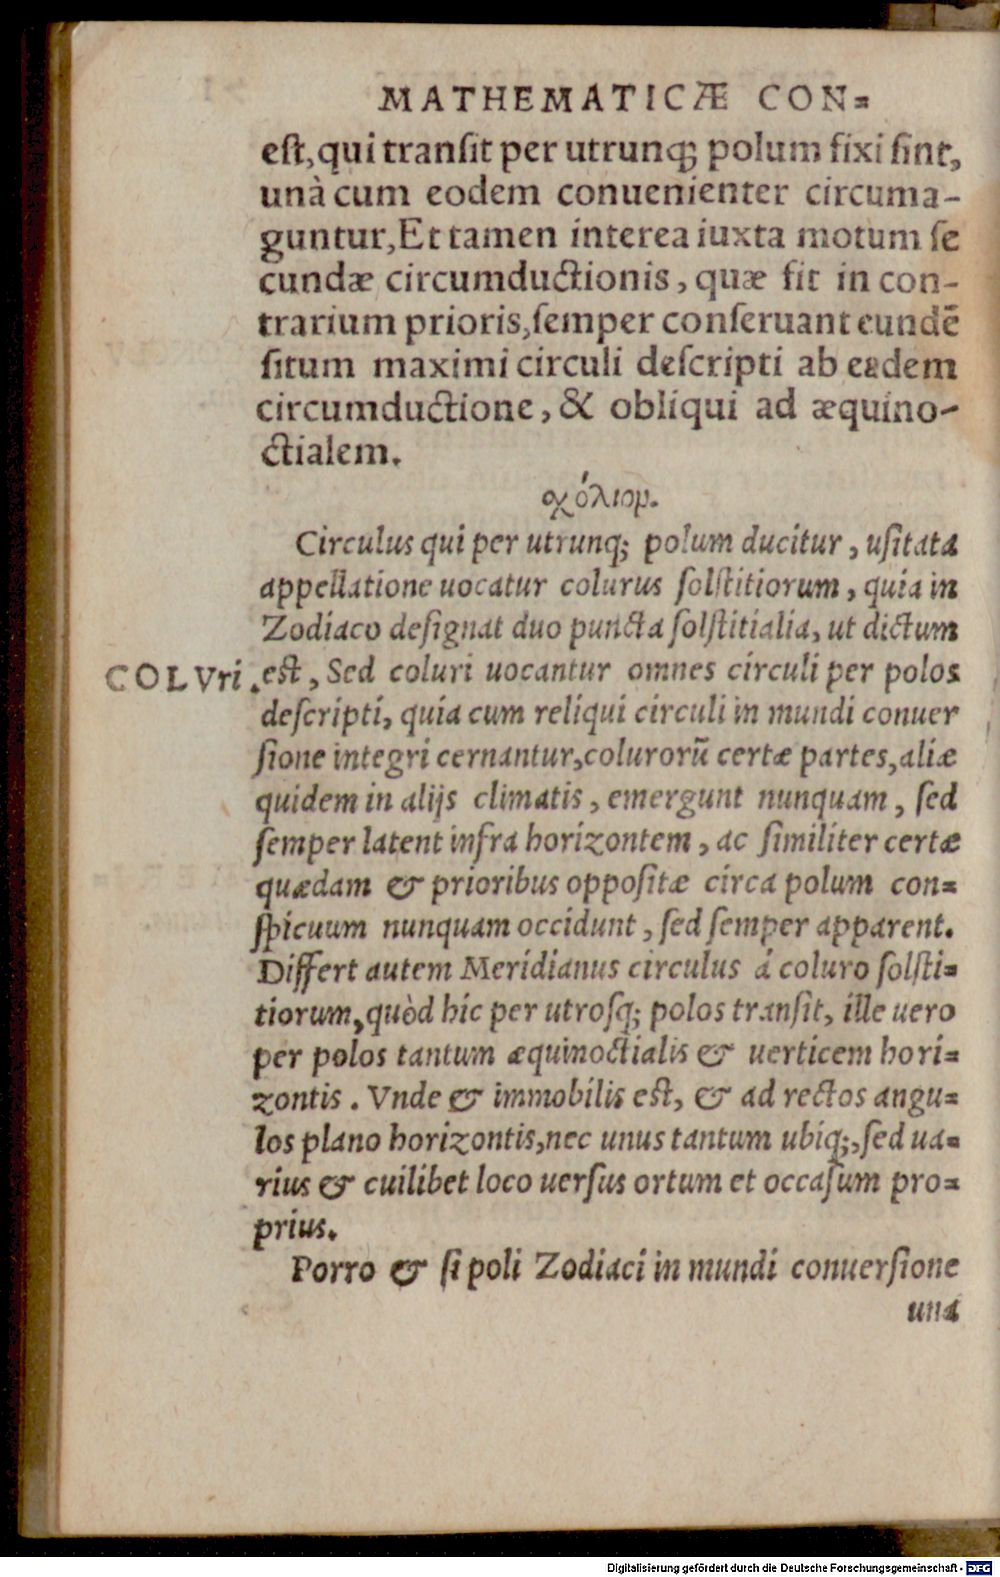 MATHEMATICÆ CON=
eſt, qui tranſit per utrunq; polum fixi ſint,
unà cum eodem conuenienter circuma-
guntur, Et tamen interea iuxta motum ſe
cundæ circumductionis, quæ fit in con-
trarium prioris, ſemper conſeruant eundē
ſitum maximi circuli deſcripti ab eadem
circumductione, & obliqui ad æquino-
ctialem.
σχόλιομ.
Circulus qui per utrunq; polum ducitur, uſitata
appellatione uocatur colurus ſolſtitiorum, quia in
Zodiaco deſignat duo puncta ſolſtitialia, ut dictum
COLVri. eſt, Sed coluri uocantur omnes circuli per polos
deſcripti, quia cum reliqui circuli in mundi conuer
ſione integri cernantur, colurorū certæ partes, aliæ
quidem in alijs climatis, emergunt nunquam, ſed
ſemper latent infra horizontem, ac ſimiliter certæ
quædam & prioribus oppoſitæ circa polum con=
ſpicuum nunquam occidunt, ſed ſemper apparent.
Differt autem Meridianus circulus á coluro ſolſti=
tiorum, quòd hic per utroſq; polos tranſit, ille uero
per polos tantum æquinoctialis & uerticem hori=
zontis. Vnde & immobilis eſt, & ad rectos angu=
los plano horizontis, nec unus tantum ubiq;, ſed ua=
rius & cuilibet loco uerſus ortum et occaſum pro=
prius.
Porro & ſi poli Zodiaci in mundi conuerſione
una
Digitalisierung gefördert durch die Deutsche Forschungsgemeinschaft - DFG